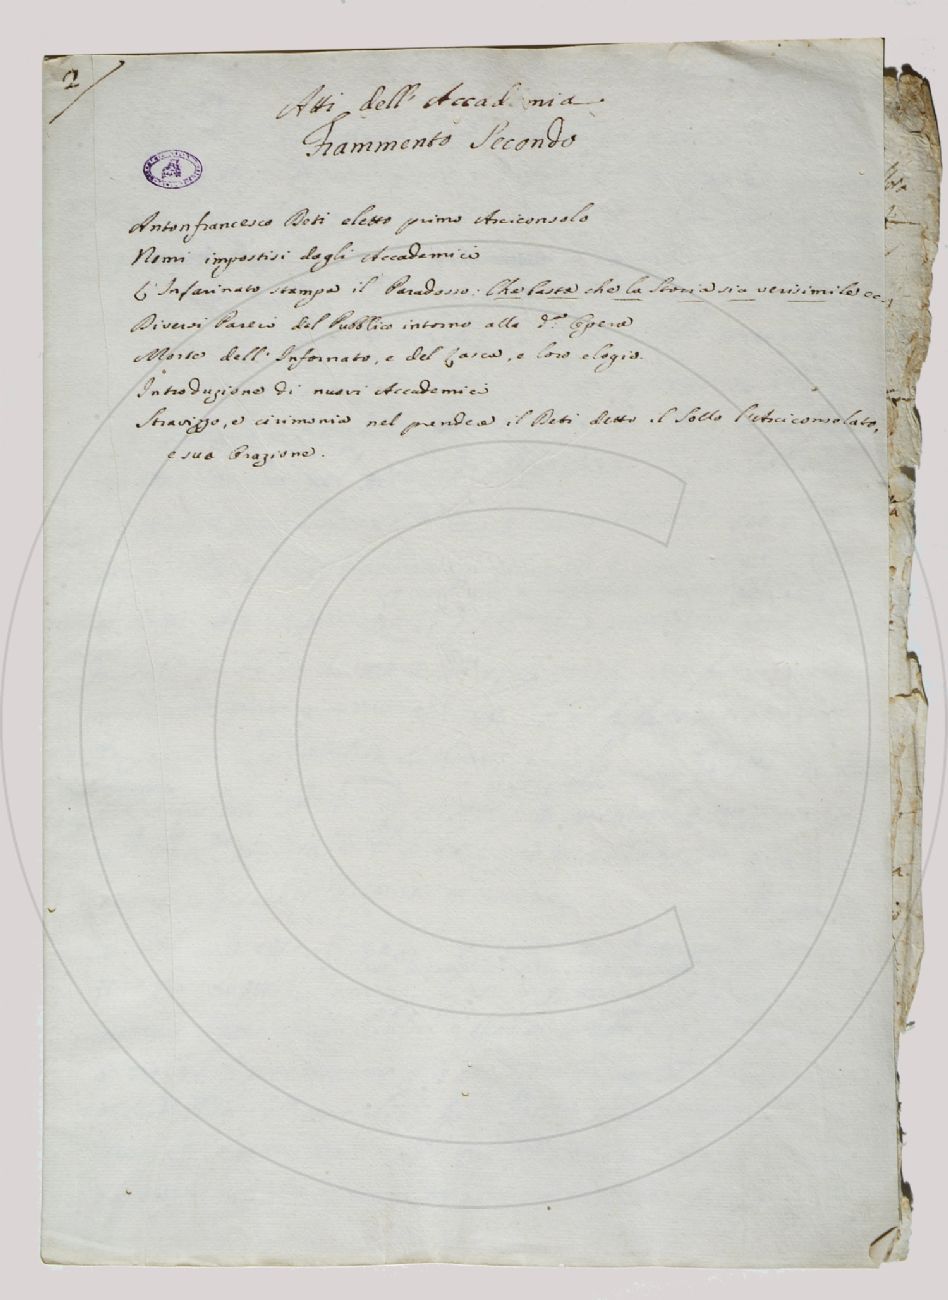 2
Atti dell'Accademia
Frammento Secondo
Antonfrancesco Beti eletto primo Arciconsolo
Nomi impostisi dagli Accademici
L'Infarinato stampa il Paradosso: Che basta che la Storia sia verisimile ec.
Diversi Pareri del Pubblico intorno alla d.ᵃ Opera
Morte dell'Infornato, e del Lasca, e loro elogio.
Introduzione di nuovi Accademici
Stravizzo, e cirimonia nel prender il Beti detto il Sollo l'Arciconsolato,
e sua Orazione.